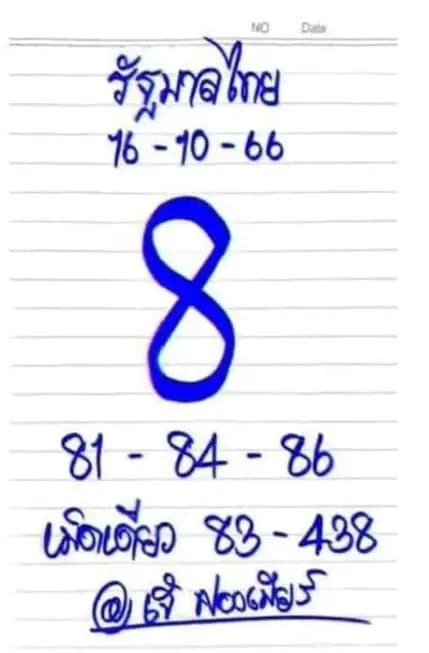 NO Date
รัฐบาลไทย
16-10-66
8
81 - 84 - 86
เม็ดเดียว 83 - 438
@ เจ๊ ฟองเบียร์